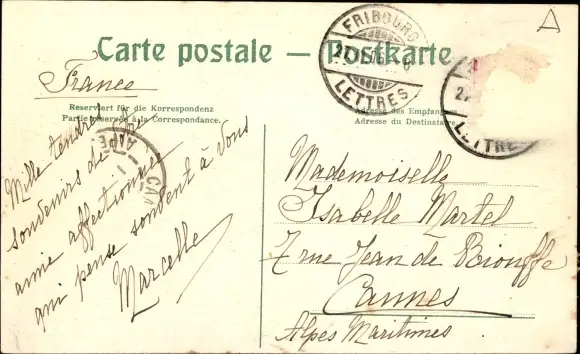 Carte postale — Postkarte
France
Reserviert für die Korrespondenz
Partie réservée à la Correspondance.
Adresse des Empfäng
Adresse du Destinataire
FRIBOURG
LETTRES
LETTRE
ALPE
CAN
Mille tendres
souvenirs de
amie affectionnée
qui pense souvent à vous
Marcelle
Mademoiselle
Isabelle Martel
7 rue Jean de Riouffe
Cannes
Alpes Maritimes